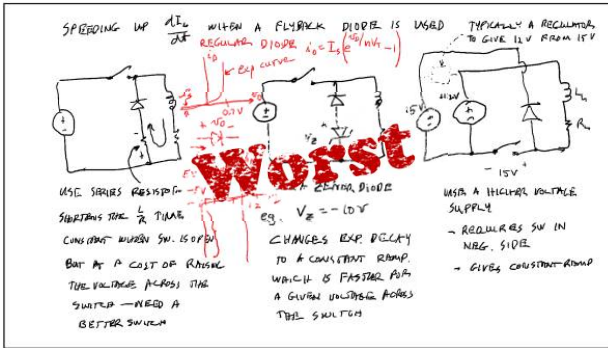 SPEEDING UP dIL/dt WHEN A FLYBACK DIODE IS USED
TYPICALLY A REGULATOR
TO GIVE 12V FROM 15V
REGULAR DIODE iD = Is(e^vD/nVt -1)
iD
EXP CURVE
0.7V
vD
15V
12V
Vz
RL
- 15V +
Worst
USE SERIES RESISTOR
SHORTENS THE L/R TIME
CONSTANT WHEN SW. IS OPEN
BUT AT A COST OF RAISING
THE VOLTAGE ACROSS THE
SWITCH — NEED A
BETTER SWITCH
A ZENER DIODE
eg. Vz = -10V
CHANGES EXP. DECAY
TO A CONSTANT RAMP.
WHICH IS FASTER FOR
A GIVEN VOLTAGE ACROSS
THE SWITCH
USE A HIGHER VOLTAGE
SUPPLY
- REQUIRES SW IN
NEG. SIDE
- GIVES CONSTANT RAMP